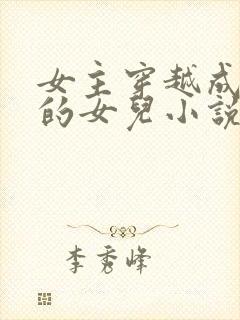 女主穿越成
的女兒小説
李秀峰